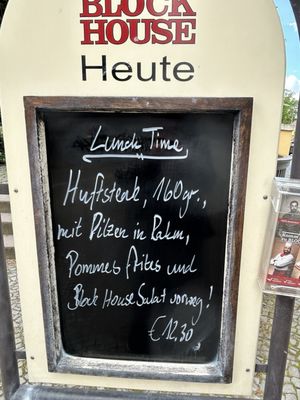 BLOCK
HOUSE
Heute
Lunch Time
Huftsteak, 160gr.,
mit Pilzen in Rahm,
Pommes frites und
Block House Salat vorweg!
€12,30